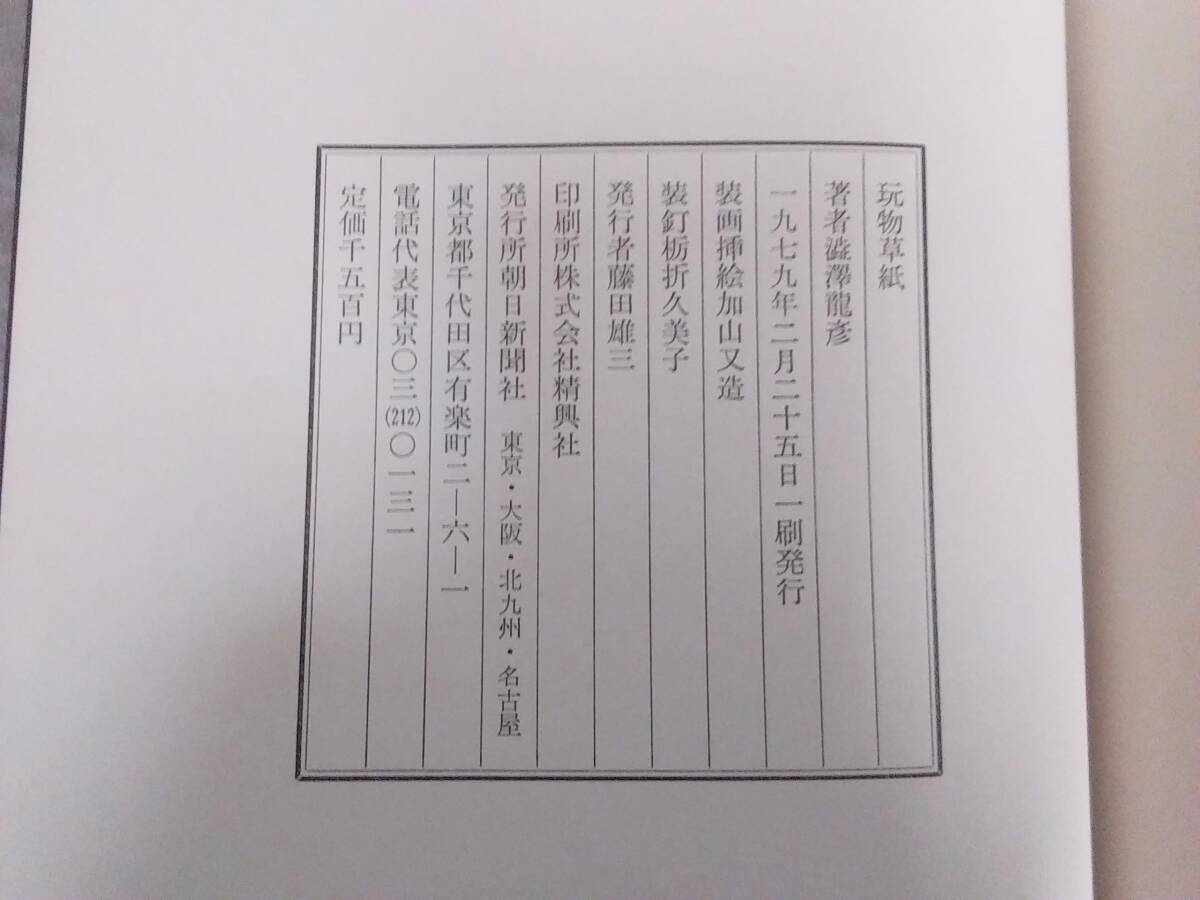 玩物草紙
著者澁澤龍彥
一九七九年二月二十五日一刷発行
装画挿絵加山又造
装釘栃折久美子
発行者藤田雄三
印刷所株式会社精興社
発行所朝日新聞社　東京・大阪・北九州・名古屋
東京都千代田区有楽町二―六―一
電話代表東京〇三(212)〇一三一
定価千五百円